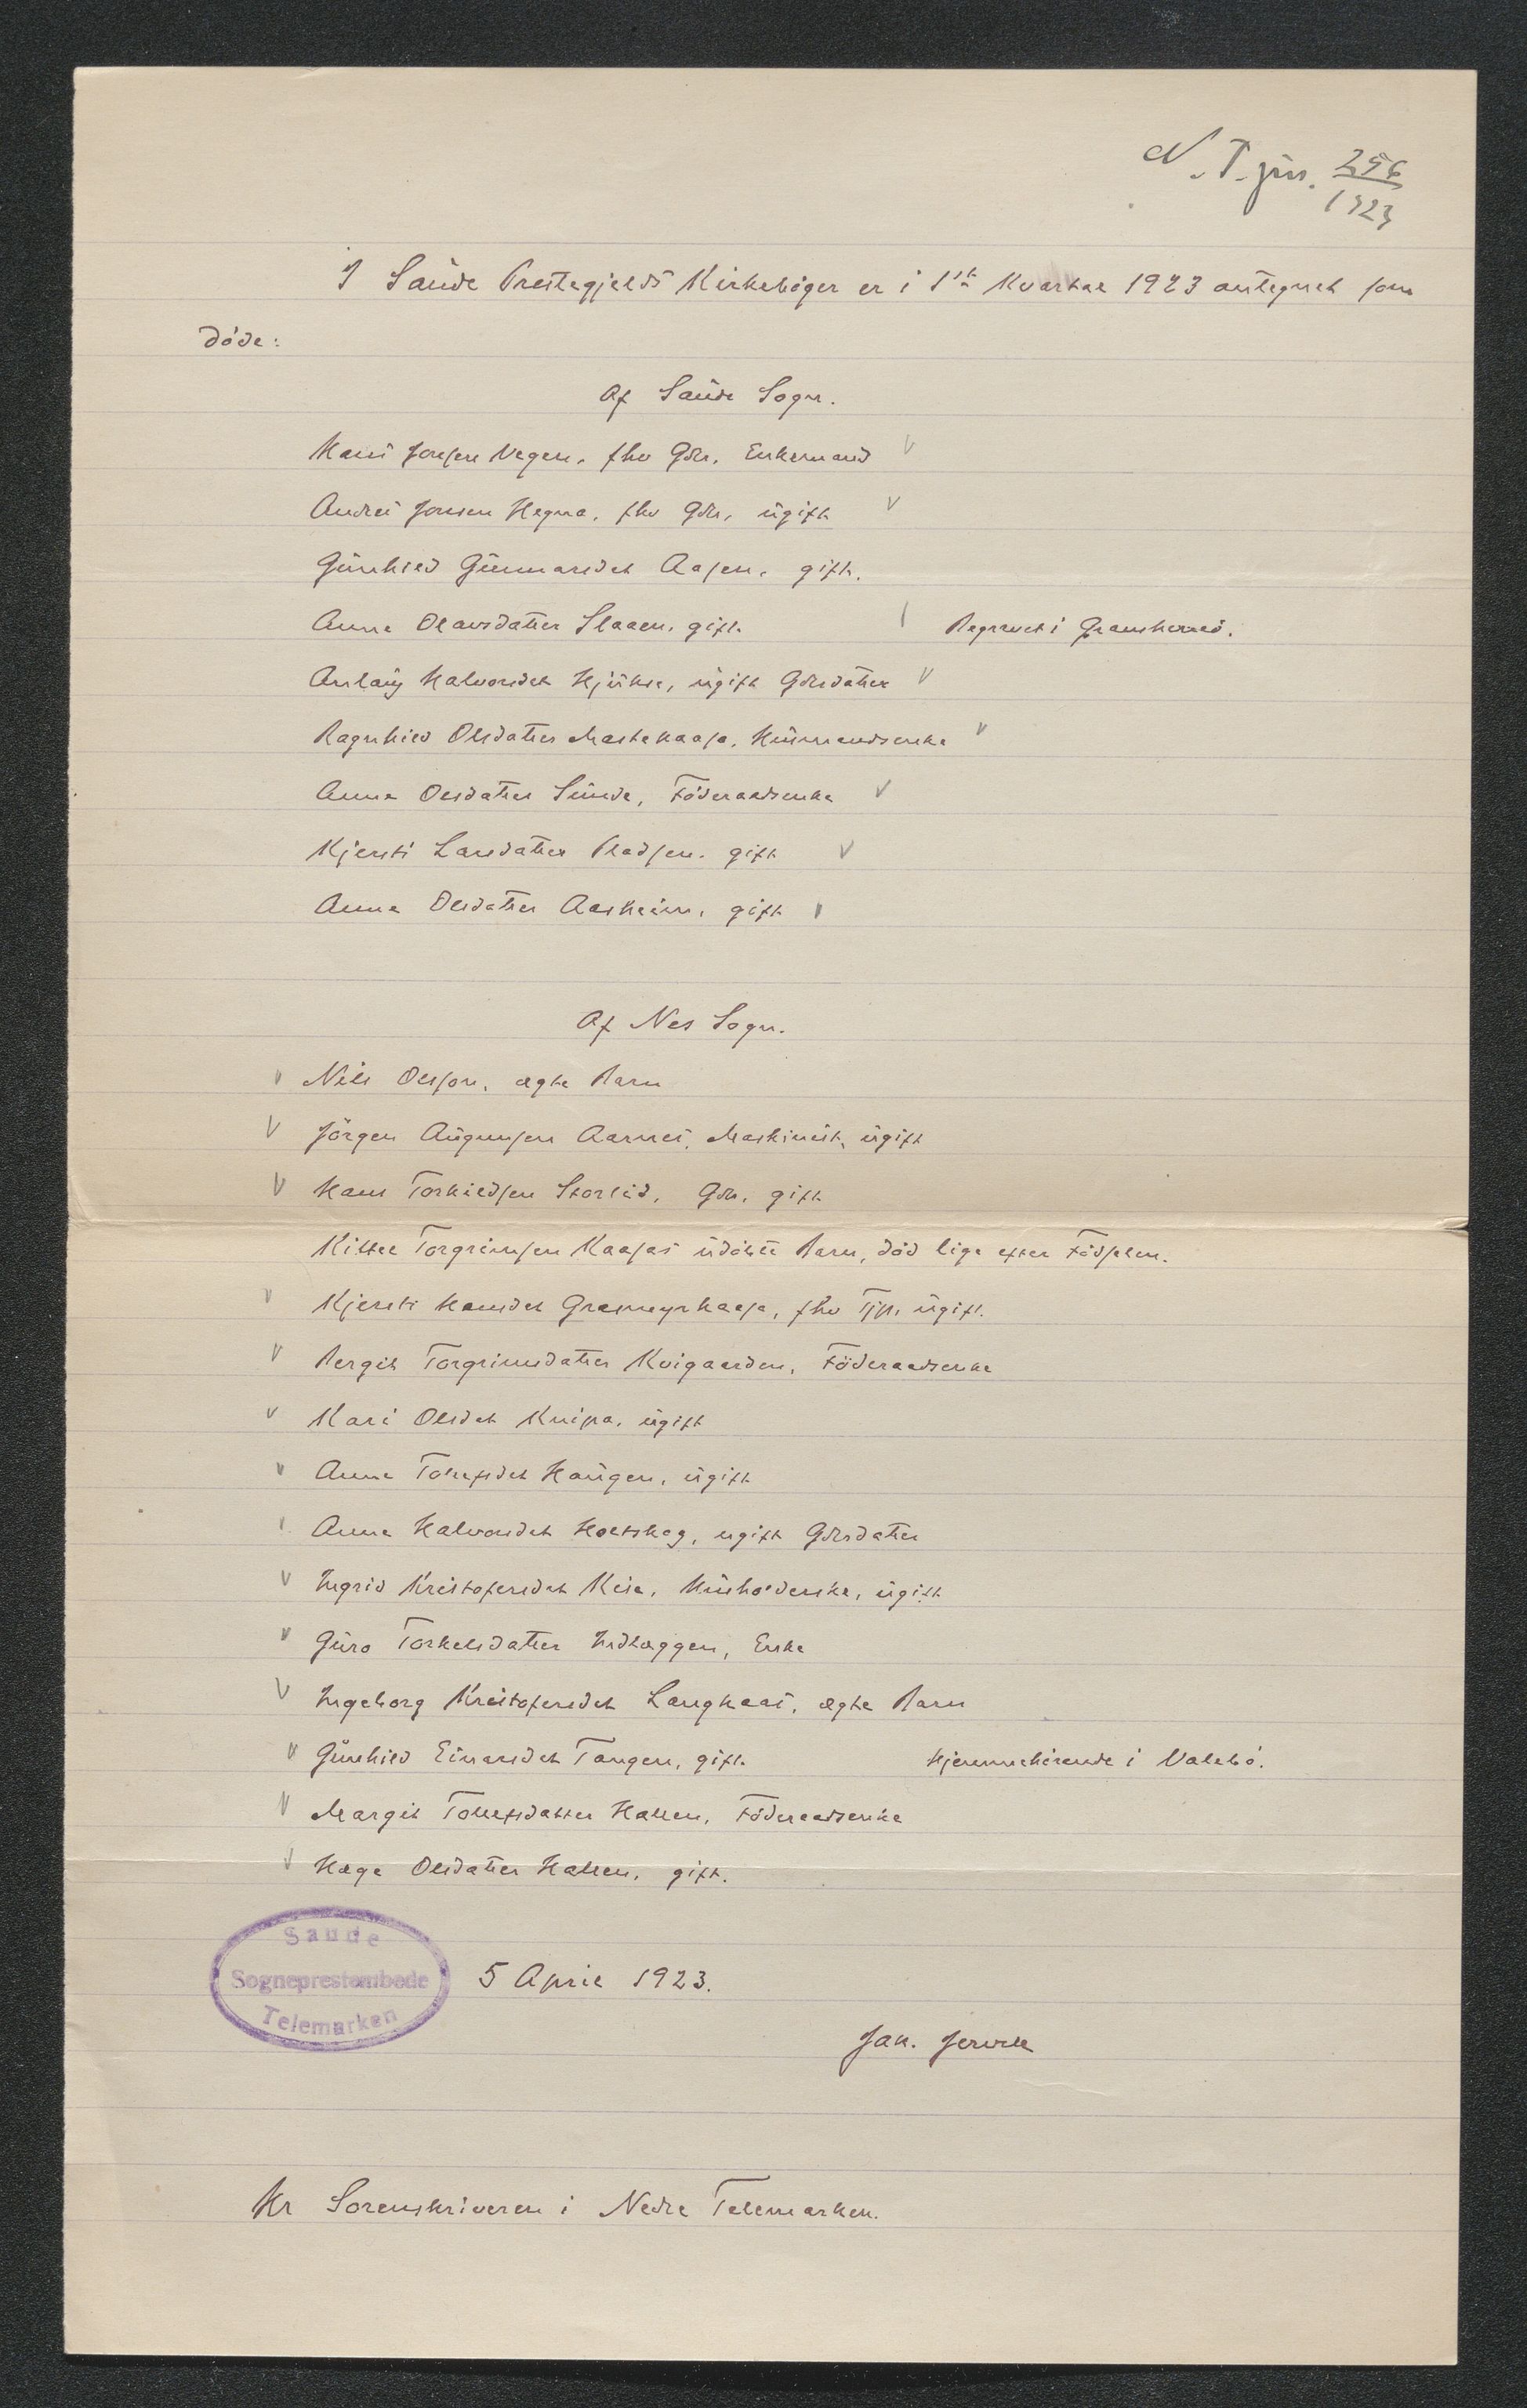 N. T. jur. 256/1923
I Saude Prestegjelds Kirkebøger er i 1ste Kvartal 1923 antegnet som
døde:
Af Saude Sogn.
Hans Jonsen Vegen, fhv Gdr, Enkemand
Andres Jonsen Hegna, fhv Gdr, ugift
Gunhild Gunnarsdat Aasen, gift.
Anne Olavsdatter Slaaen, gift. Begravet i Gransherred.
Anlaug Halvorsdat Hjukse, ugift Gdrdatter
Ragnhild Olsdatter Mastekaasa, Husmandsenke
Anne Olsdatter Sunde, Føderaadsenke
Kjersti Larsdatter Pladsen, gift
Anne Olsdatter Aasheim, gift
Af Nes Sogn.
Nils Olsson, ægte Barn
Jörgen Augunsen Aarnes, Maskinist, ugift
Hans Torkildsen Storlid, Gdr. gift
Kittel Torgrimsen Kaasas udöbte Barn, död lige efter Födselen.
Kjersti Hansdat Grasmyrkaasa, fhv Tjp. ugift.
Bergit Torgrimsdatter Kvigaarden, Föderaadsenke
Kari Olsdat Knipa, ugift
Anne Tollefsdat Haugen, ugift
Anne Halvorsdat Holtskog, ugift Gdrsdatter
Ingrid Kristofersdat Keise, Husholderske, ugift
Guro Torkelsdatter Indlæggen, Enke
Ingeborg Kristofersdat Langkaas, ægte Barn
Gunhild Einarsdat Tangen, gift. Hjemmehörende i Valebö.
Margit Tollefsdatter Hallen, Föderaadsenke
Hæge Olsdatter Hallen, gift.
Saude
Sogneprestembede
Telemarken
5 April 1923.
Jak.
Hr Sorenskriveren i Nedre Telemarken.